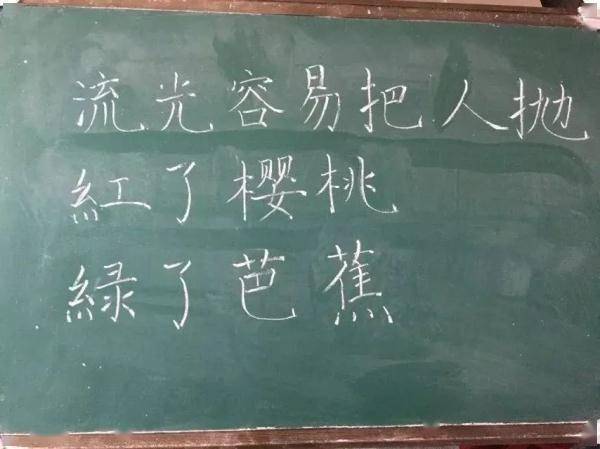 流光容易把人抛
紅了樱桃
緑了芭蕉